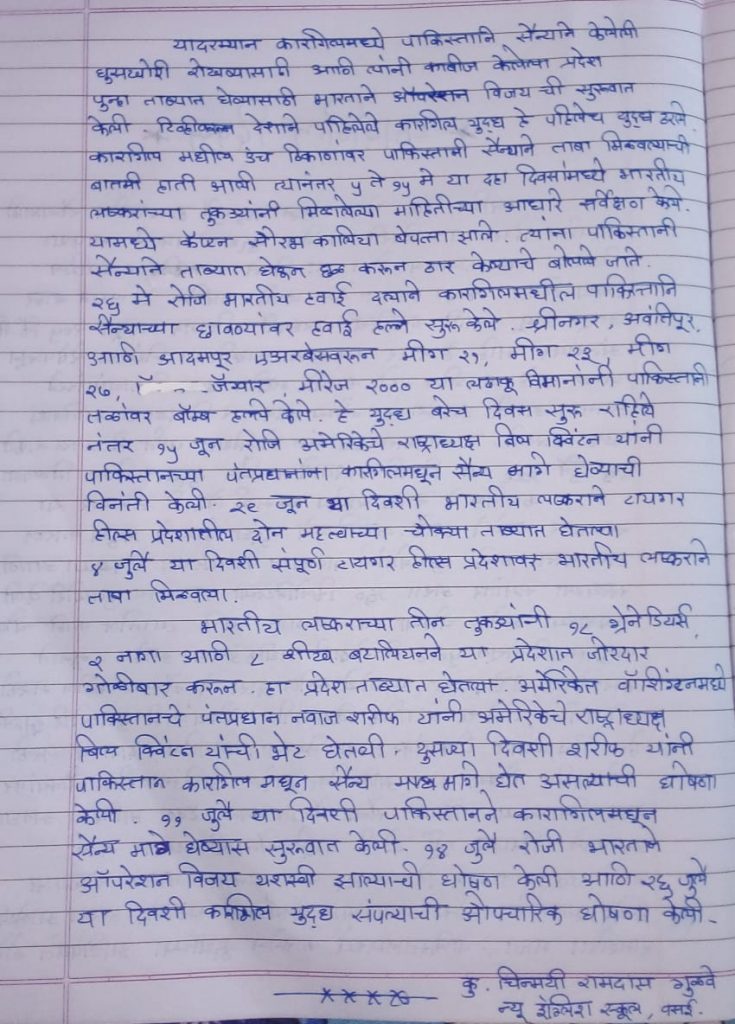 यादरम्यान कारगिलमध्ये पाकिस्तानि सैन्याने केलेली
घुसखोरी रोखव्यासाठी आणि त्यांनी काबीज केलेला प्रदेश
पुन्हा ताब्यात घेव्यासाठी भारताने ऑपरेशन विजय ची सुरुवात
केली. देशाने पाहिलेले कारगिल युद्ध हे पहिलेच युद्ध ठरले.
कारगिल मधील उंच ठिकाणांवर पाकिस्तानी सैन्याने ताबा मिळवल्याची
बातमी हाती आली त्यानंतर ५ ते १५ मे या दहा दिवसांमध्ये भारतीय
लष्करांच्या तुकड्यांनी मिळालेल्या माहितीच्या आधारे सर्वेक्षण केले.
यामध्ये कॅप्टन सौरभ कालिया बेपत्ता झाले. त्यांना पाकिस्तानी
सैन्याने ताब्यात घेऊन छळ करून ठार केल्याचे बोलले जाते.
२६ मे रोजि भारतीय हवाई दलाने कारगिलमधील पाकिस्तानि
सैन्याच्या छावण्यांवर हवाई हल्ले सुरू केले. श्रीनगर, अवंतिपूर,
आणि आदमपूर एअरबेसवरून मीग २१, मीग २३ मीग
२७, जॅग्वार, मीरेज २००० या लढाकू विमानांनी पाकिस्तानी
तळांवर बॉम्ब हल्ले केले हे युद्ध बरेच दिवस सुरू राहिले
नंतर १५ जून रोजि अमेरिकेचे राष्ट्राध्यक्ष बिल क्लिंटन यांनी
पाकिस्तानच्या पंतप्रधानांना कारगिलमधून सैन्य मागे घेव्याची
विनंती केली. २९ जून या दिवशी भारतीय लष्कराने टायगर
हील्स प्रदेशातील दोन महत्वाच्या चौक्या ताब्यात घेतल्या
४ जुलै या दिवशी संपूर्ण टायगर हील्स प्रदेशावर भारतीय लष्कराने
ताबा मिळवला.
भारतीय लष्कराच्या तीन तुकड्यांनी १८ ग्रेनेडियर्स,
२ नागा आणि ८ शीख बटालियनने या प्रदेशात जोरदार
गोळीबार करून हा प्रदेश ताब्यात घेतला. अमेरिकेत वॉशिंग्टनमध्ये
पाकिस्तानचे पंतप्रधान नवाज शरीफ यांनी अमेरिकेचे राष्ट्राध्यक्ष
बिल क्लिंटन यांची भेट घेतली. दुसऱ्या दिवशी शरीफ यांनी
पाकिस्तान कारगिल मधून सैन्य मागे घेत असल्याची घोषणा
केली. ११ जुलै या दिवशी पाकिस्तानने कारागिलमधून
सैन्य मागे घेव्यास सुरूवात केली. १४ जुलै रोजी भारताने
ऑपरेशन विजय यशस्वी झाल्याची घोषणा केली आणि २६ जुलै
या दिवशी कारगिल युद्ध संपल्याची औपचारिक घोषणा केली.
कु. चिन्मयी रामदास गुळवे
न्यू इंग्लिश स्कूल, वसई.